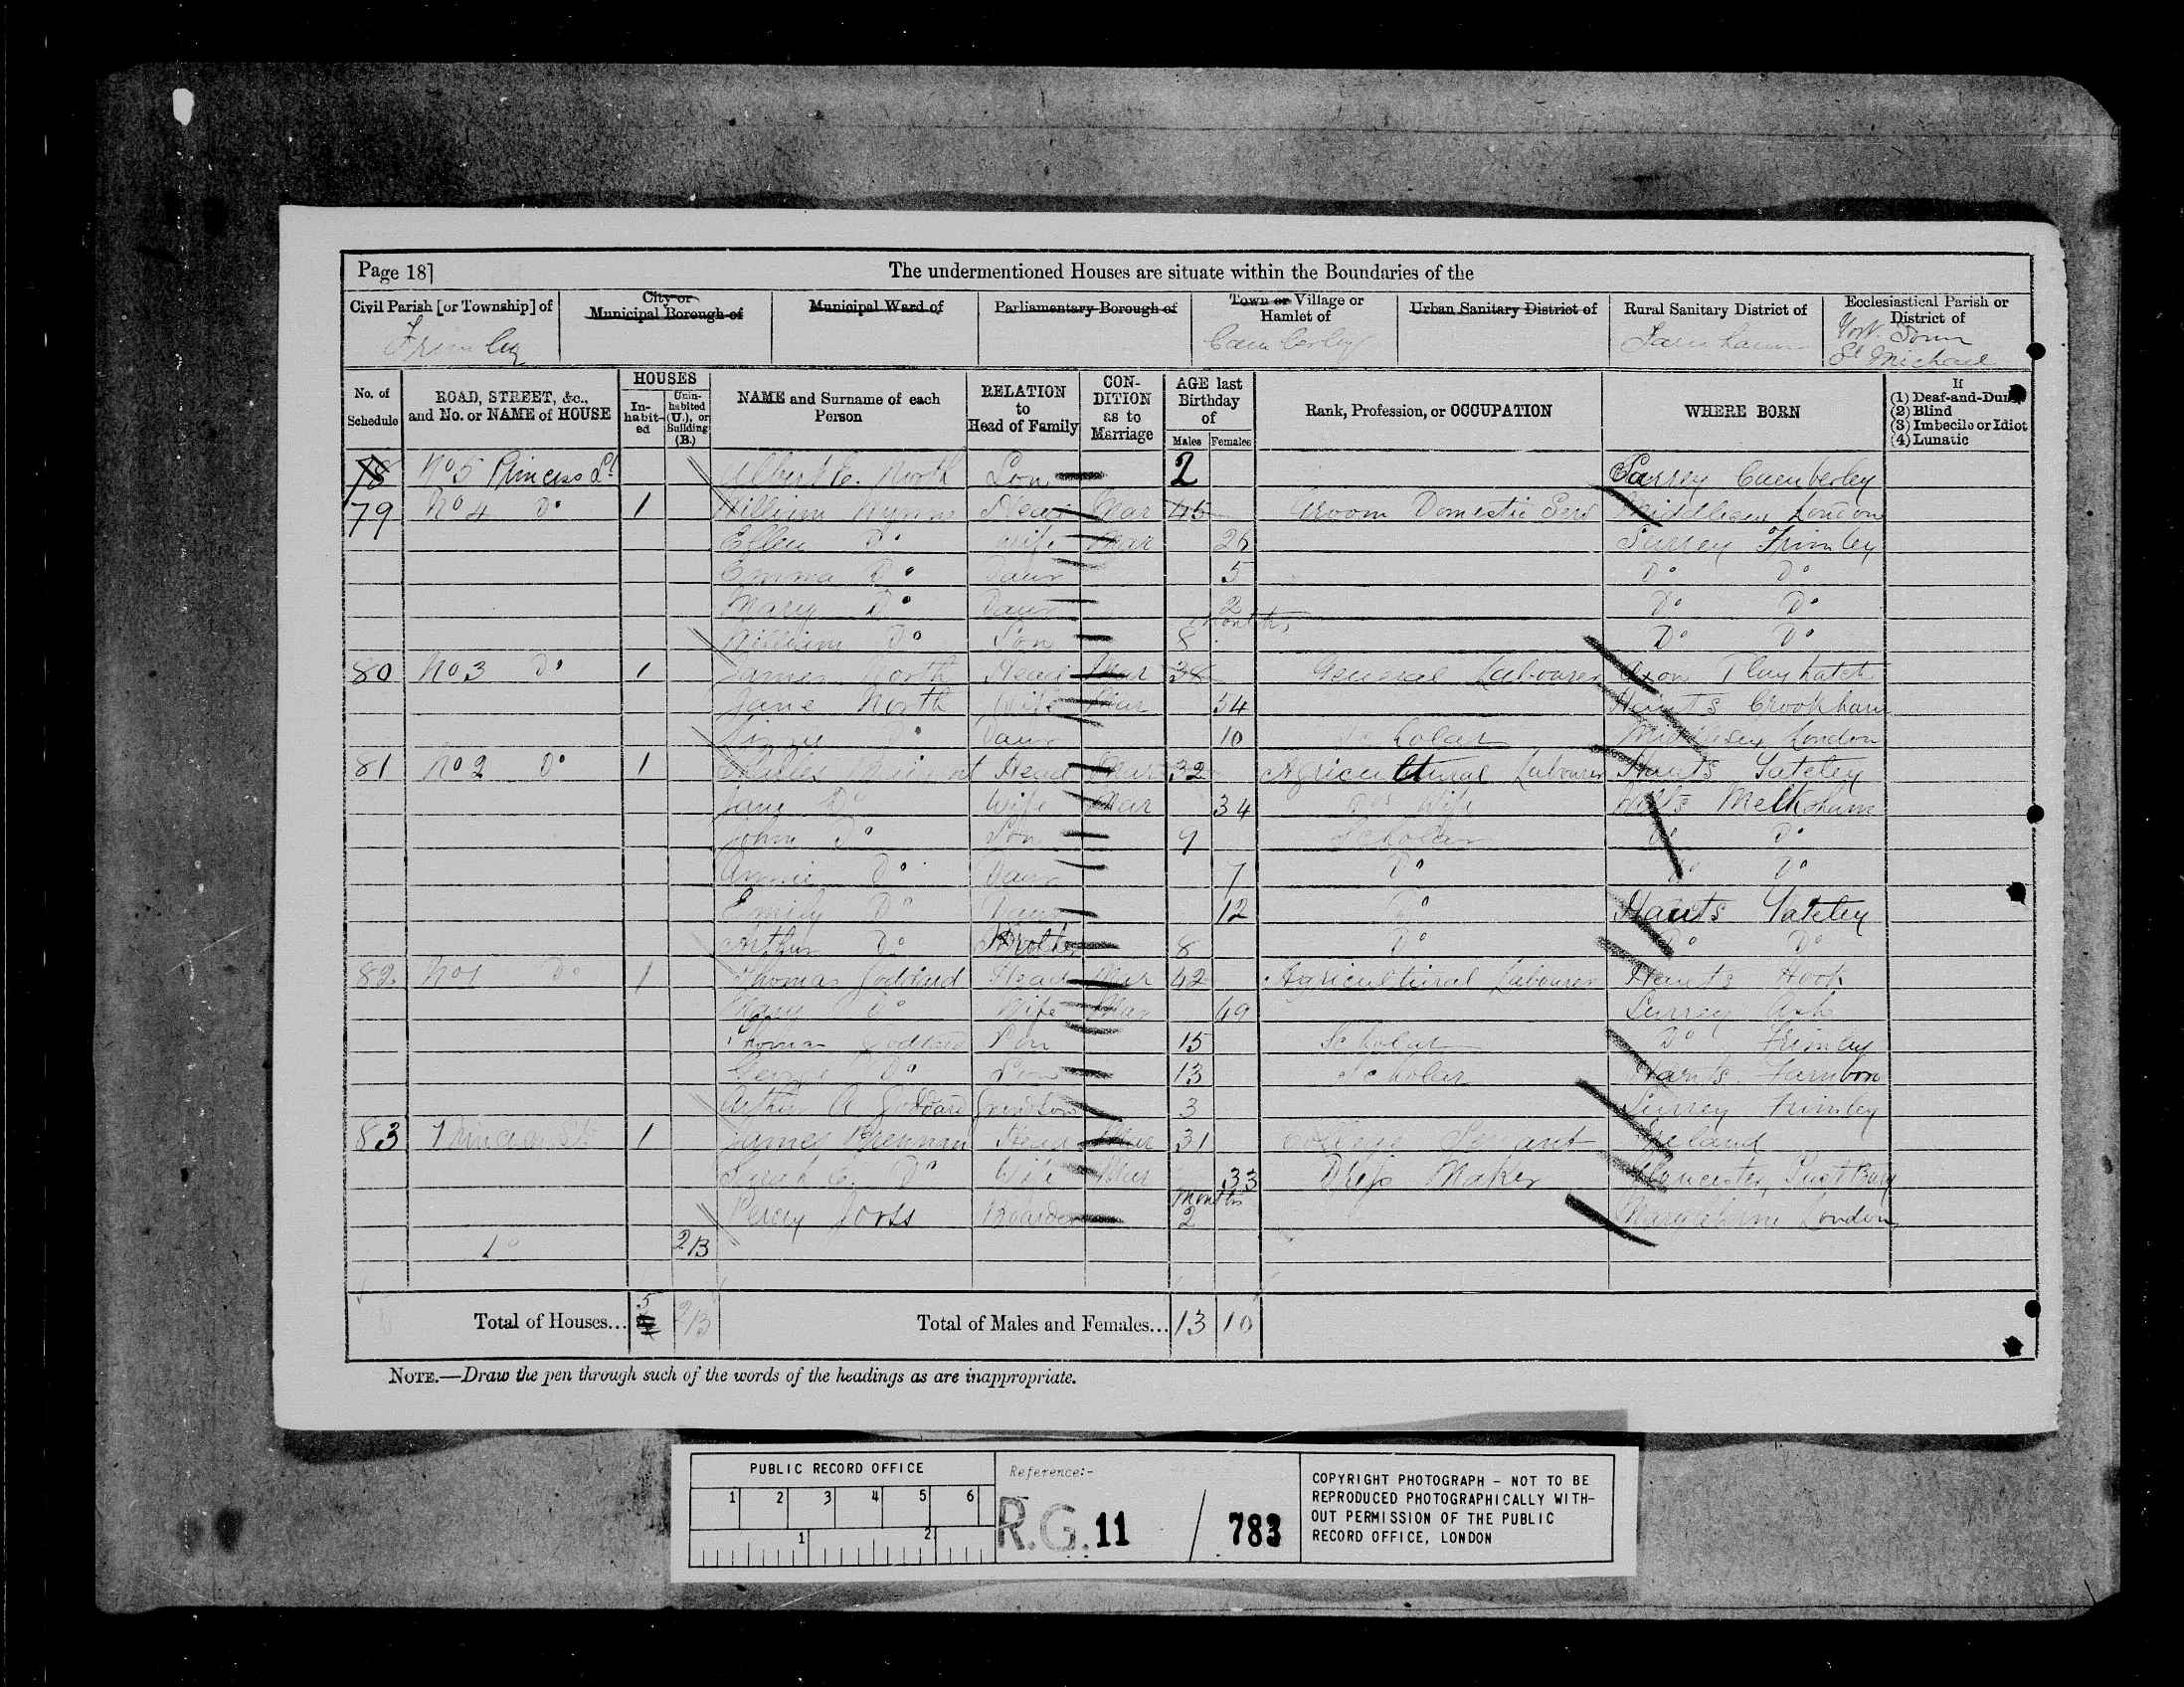 Page 18]
The undermentioned Houses are situate within the Boundaries of the
Civil Parish [or Township] of
City or Municipal Borough of
Municipal Ward of
Parliamentary Borough of
Town or Village or Hamlet of
Urban Sanitary District of
Rural Sanitary District of
Ecclesiastical Parish or District of
Frimley Camberley Farnham York Town St Michael
No. of Schedule
ROAD, STREET, &c., and No. or NAME of HOUSE
HOUSES
Inhabited
Uninhabited (U.), or Building (B.)
NAME and Surname of each Person
RELATION to Head of Family
CONDITION as to Marriage
AGE last Birthday of
Males Females
Rank, Profession, or OCCUPATION
WHERE BORN
If
(1) Deaf-and-Dumb
(2) Blind
(3) Imbecile or Idiot
(4) Lunatic
78 No 5 Princess St Albert E. North Son 2 Surrey Camberley
79 No 4 Do 1 William Head Mar 45 Groom Domestic Serv Middlesex London
Ellen Do Wife Mar 26 Surrey Frimley
Emma Do Daur 5 Do Do
Mary Do Daur 2 Do Do
William Do Son 8 Months Do Do
80 No 3 Do 1 James North Head Mar 38 General Labourer Oxon Playhatch
Jane North Wife Mar 34 Hants Crookham
Lizzie Do Daur 10 Scholar Middlesex London
81 No 2 Do 1 Head Mar 32 Agricultural Labourer Hants Yateley
Jane Do Wife Mar 34 Dos Wife Wilts Melksham
John Do Son 9 Scholar Do Do
Annie Do Daur 7 Do Do Do
Emily Do Daur 12 Do Hants Yateley
Arthur Do Brother 8 Do Do Do
82 No 1 Do 1 Thomas Goddard Head Mar 42 Agricultural Labourer Hants Hook
Mary Do Wife Mar 49 Surrey Ash
Thomas Goddard Son 15 Scholar Do Frimley
George Do Son 13 Scholar Hants Farnboro
Arthur A Goddard Grandson 3 Surrey Frimley
83 Princess St 1 James Brennan Head Mar 31 College Servant Ireland
Sarah E. Do Wife Mar 33 Dress Maker Gloucester,
Percy Boarder 2 Months Marylebone London
Do 2B
Total of Houses... 5 2B
Total of Males and Females... 13 10
NOTE.—Draw the pen through such of the words of the headings as are inappropriate.
PUBLIC RECORD OFFICE
1 2 3 4 5 6
1 2
Reference:-
R.G. 11 / 783
COPYRIGHT PHOTOGRAPH - NOT TO BE
REPRODUCED PHOTOGRAPHICALLY WITH-
OUT PERMISSION OF THE PUBLIC
RECORD OFFICE, LONDON